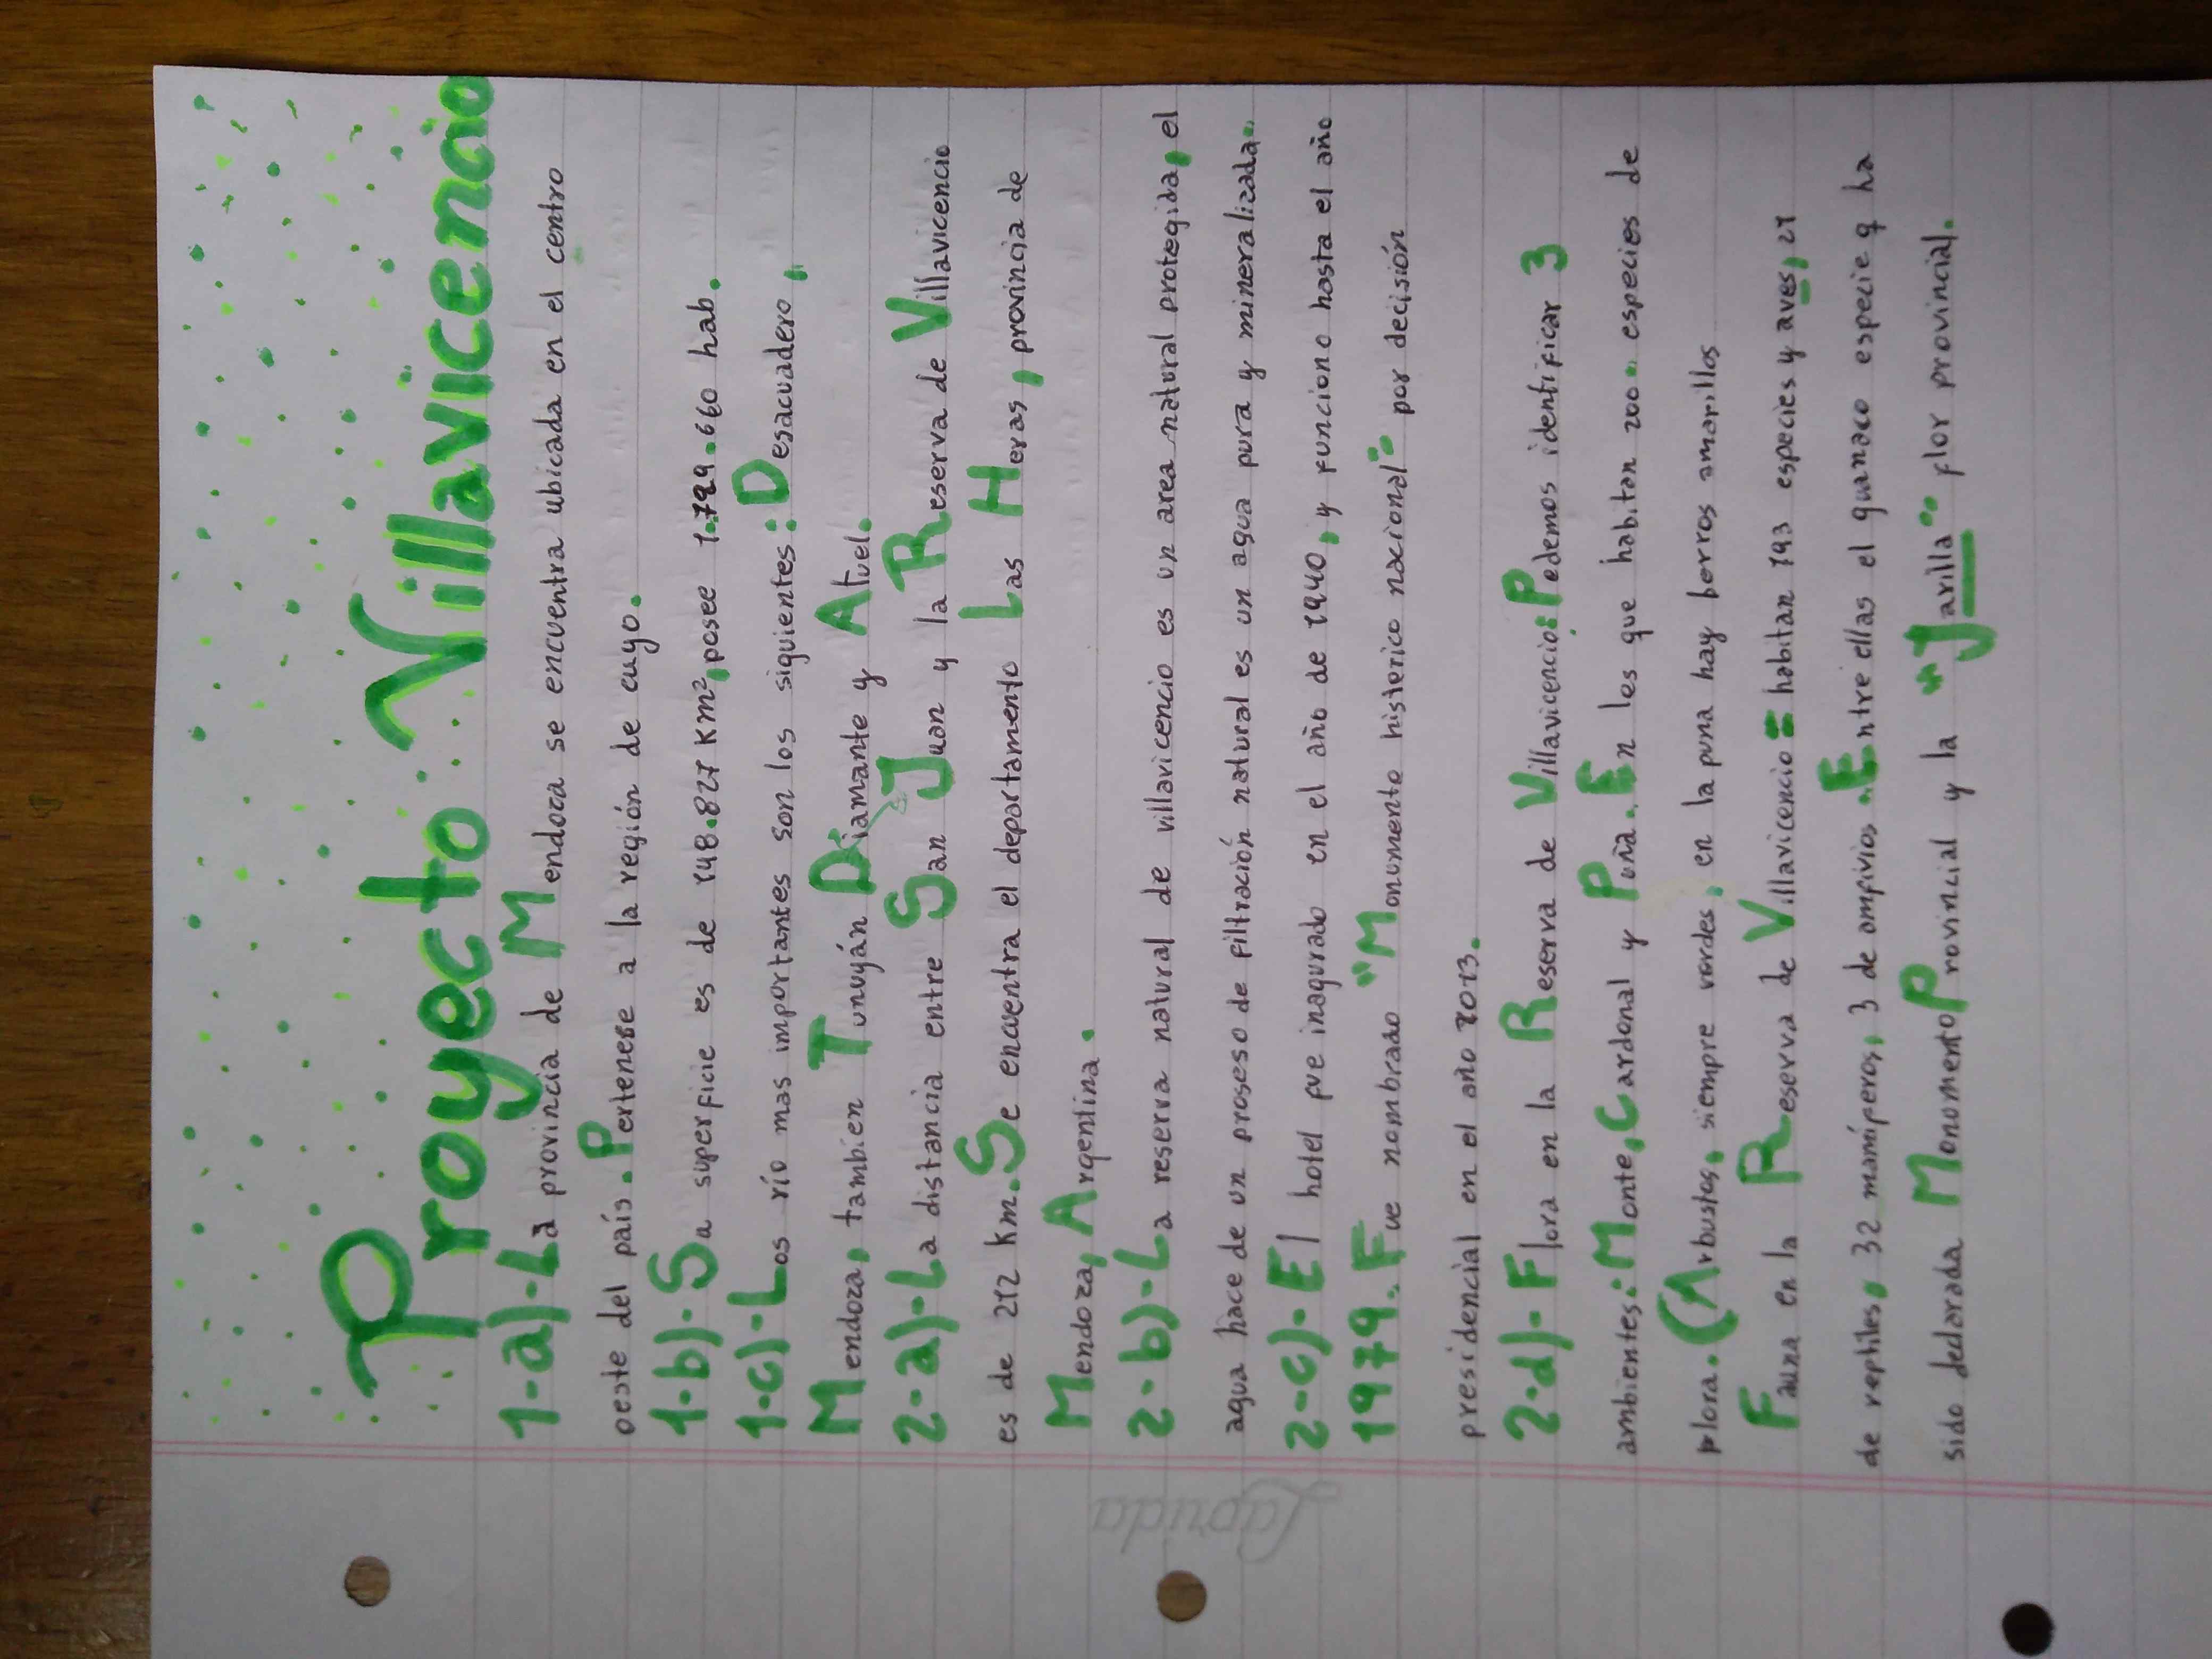 Proyecto Villavicencio
1-a)-La provincia de Mendoza se encuentra ubicada en el centro
oeste del país. Pertenese a la región de cuyo.
1-b)-Su superficie es de 148.827 Km², posee 1.799.660 hab.
1-c)-Los río mas importantes son los siguientes: Desacuadero,
Mendoza, tambien Tunuyán Diamante y Atuel.
2-a)-La distancia entre San Juan y la Reserva de Villavicencio
es de 212 Km. Se encuentra el deportamento Las Heras, provincia de
Mendoza, Argentina.
2-b)-La reserva natural de villavicencio es un area natural protegida, el
agua hace de un proseso de filtración natural es un agua pura y mineralizada.
2-c)-El hotel fue inagurado en el año de 1940, y funciono hasta el año
1979. Fue nombrado "Monumento histerico nacional" por decisión
presidencial en el año 2013.
2-d)-Flora en la Reserva de Villavicencio: Podemos identificar 3
ambientes: Monte, Cardonal y Puña. En los que habitan 200 especies de
plora. (Arbustos, siempre verdes, en la puna hay berros amarillos
Fauna en la Reserva de Villavicencio = habitan 193 especies y aves, 21
de reptiles, 32 mamíperos, 3 de ampivios. Entre ellas el guanaco especie q ha
sido declarada Monomento Provincial y la "Jarilla" flor provincial.
Laprida